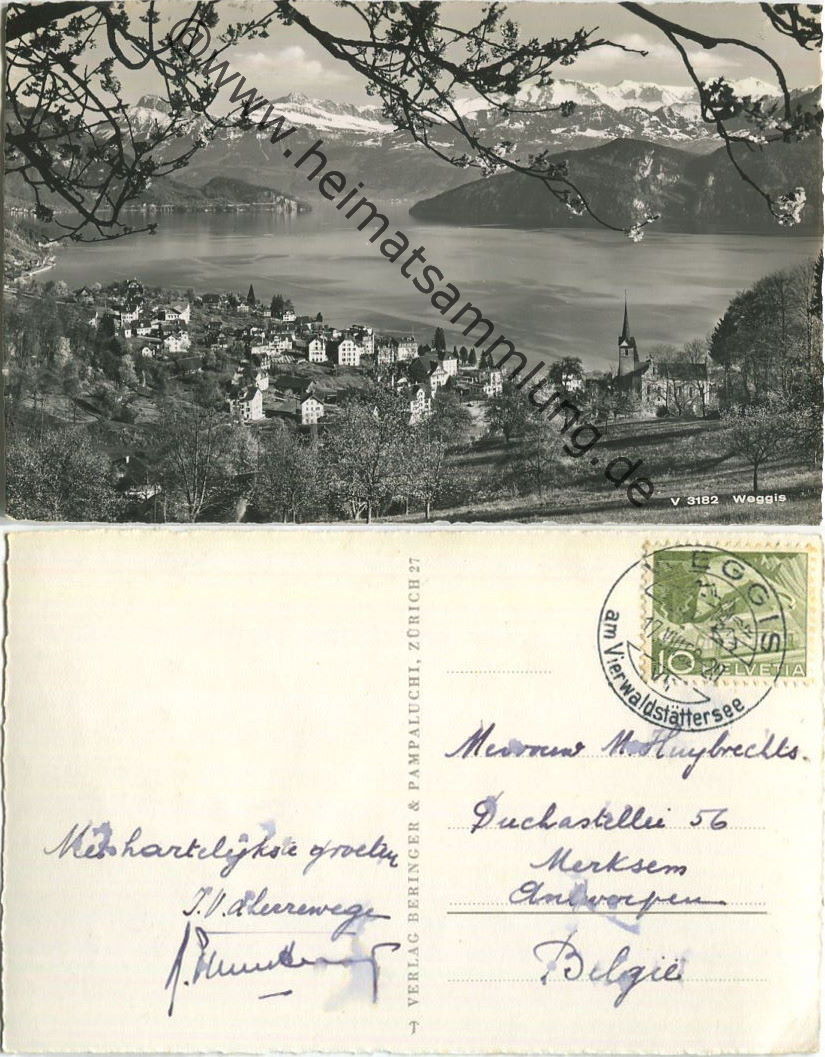 © www.heimatsammlung.de
V 3182 Weggis
VERLAG BERINGER & PAMPALUCHI, ZÜRICH 27
EGGIS
am Vierwaldstättersee
10 HELVETIA
Mevrouw M. Huybrechts.
Duchastellei 56
Merksem
Antwerpen
België
Meshartelijkste groeten